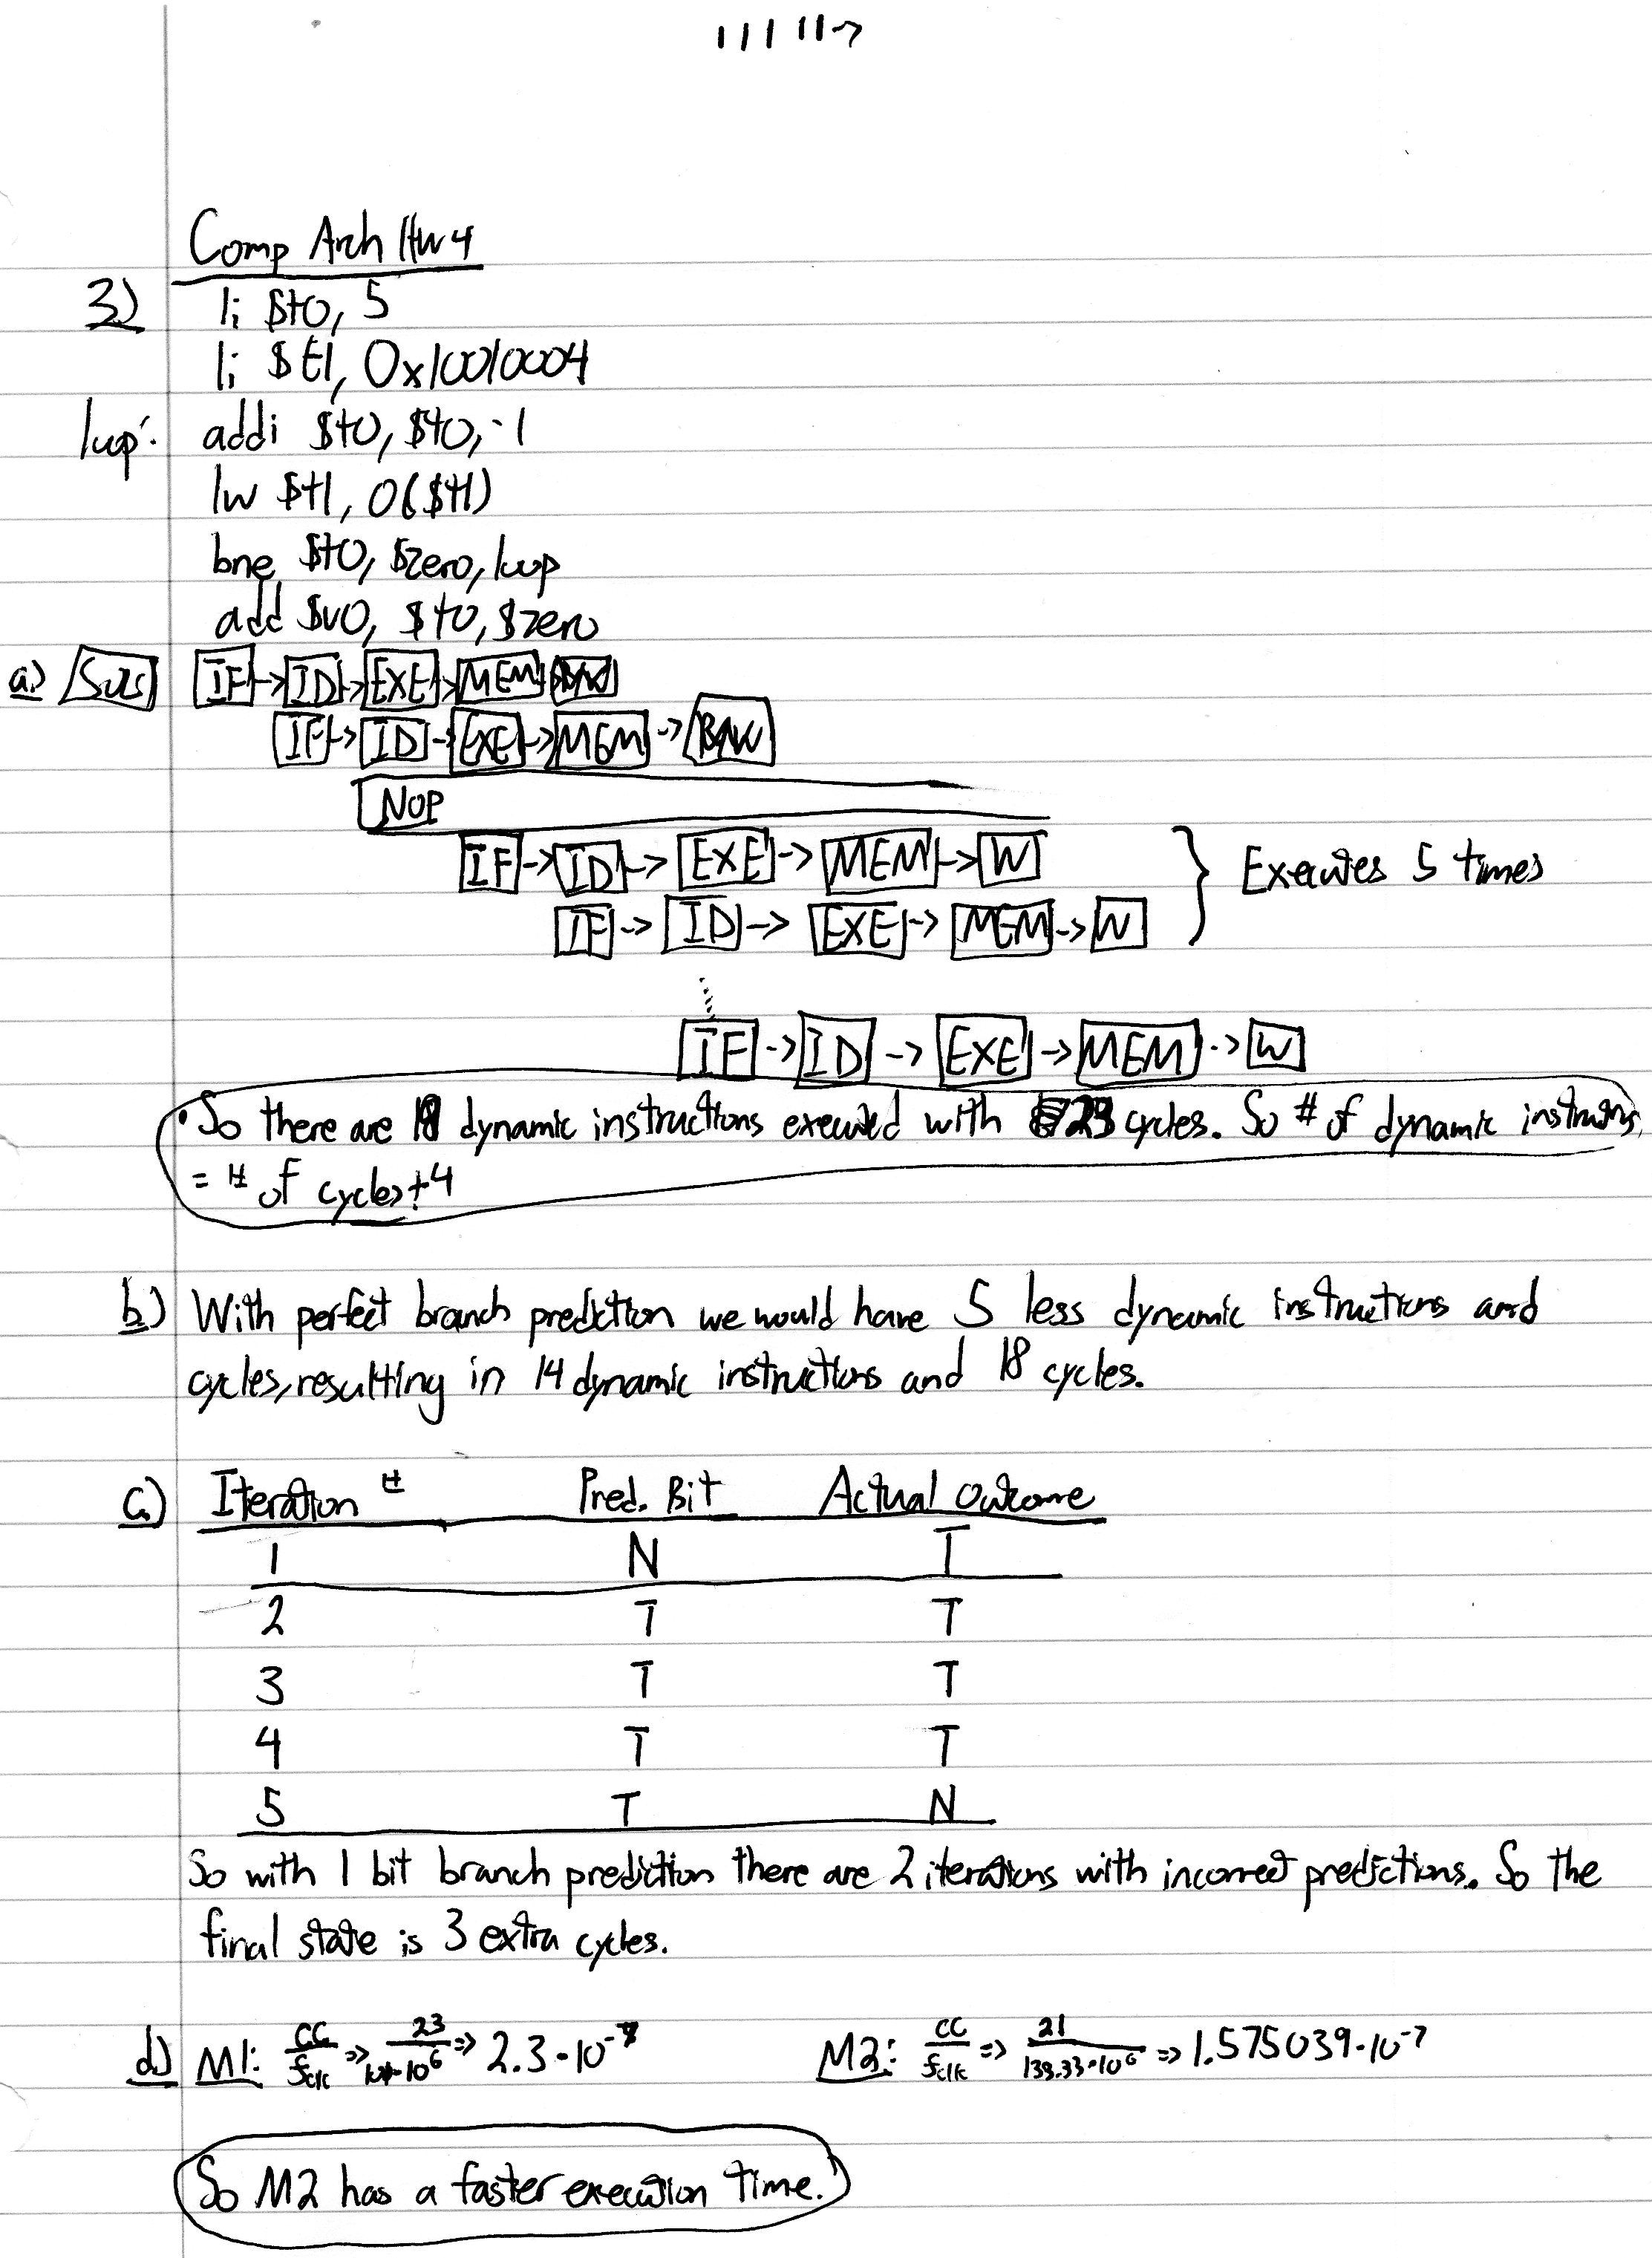 Comp Arch HW4
3) li $t0, 5
li $t1, 0x10010004
loop: addi $t0, $t0, -1
lw $t1, 0($t1)
bne $t0, $zero, loop
add $v0, $t0, $zero
a.) IF -> ID -> EXE -> MEM
IF -> ID -> EXE -> MEM ->
NOP
IF -> ID -> EXE -> MEM -> W
} Executes 5 times
IF -> ID -> EXE -> MEM -> W
IF -> ID -> EXE -> MEM -> W
• So there are dynamic instructions executed with 23 cycles. So # of dynamic
= # of cycles + 4
b.) With perfect branch prediction we would have 5 less dynamic instructions and
cycles, resulting in 14 dynamic instructions and 18 cycles.
c.) Iteration # Pred. Bit Actual Outcome
1 N T
2 T T
3 T T
4 T T
5 T N
So with 1 bit branch prediction there are 2 iterations with incorrect predictions. So the
final state is 3 extra cycles.
d.) M1: CC/fclk => 23/ ·10^6 => 2.3·10^-7 M2: CC/fclk => 21/133.33·10^6 => 1.575039·10^-7
So M2 has a faster execution time.